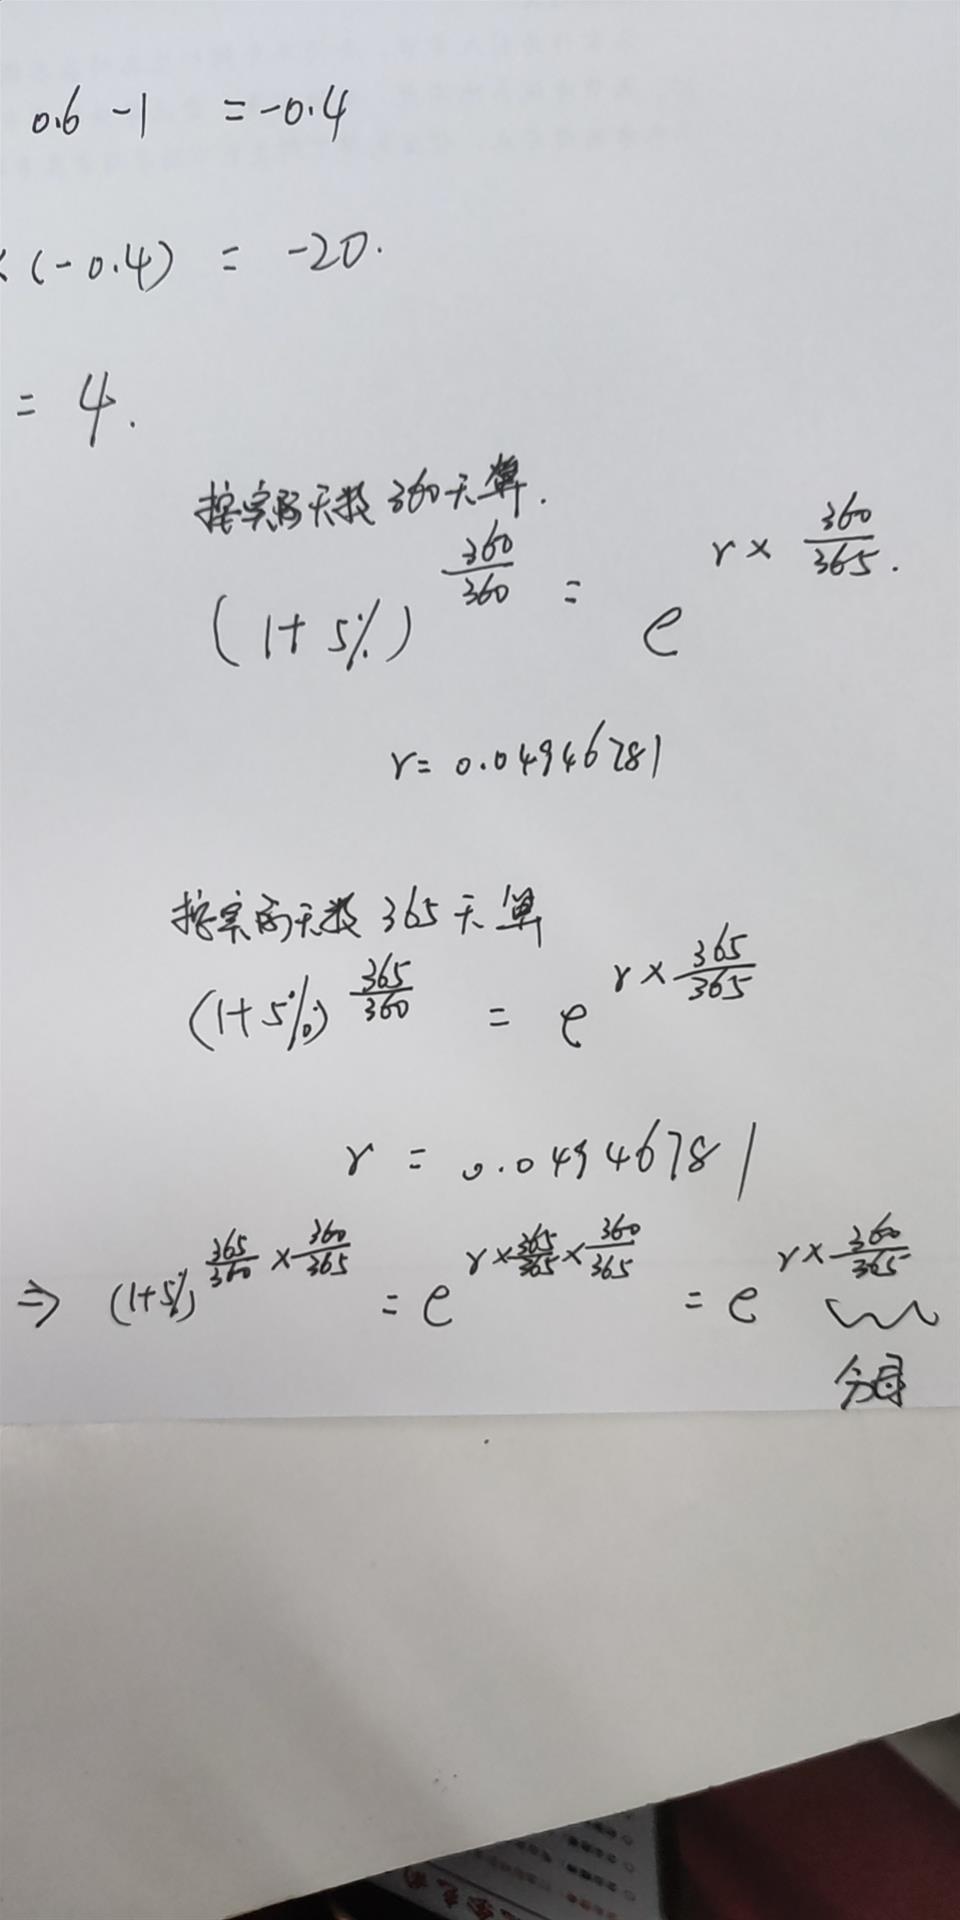 0.6 - 1 = -0.4
× (-0.4) = -20.
= 4.
按实际天数360天算.
(1+5%)^(360/360) = e^(r × 360/365).
r = 0.04946781
按实际天数365天算
(1+5%)^(365/360) = e^(r × 365/365)
r = 0.04946781
⇒ (1+5%)^(365/360 × 360/365) = e^(r × 365/365 × 360/365) = e^(r × 360/365)
分母